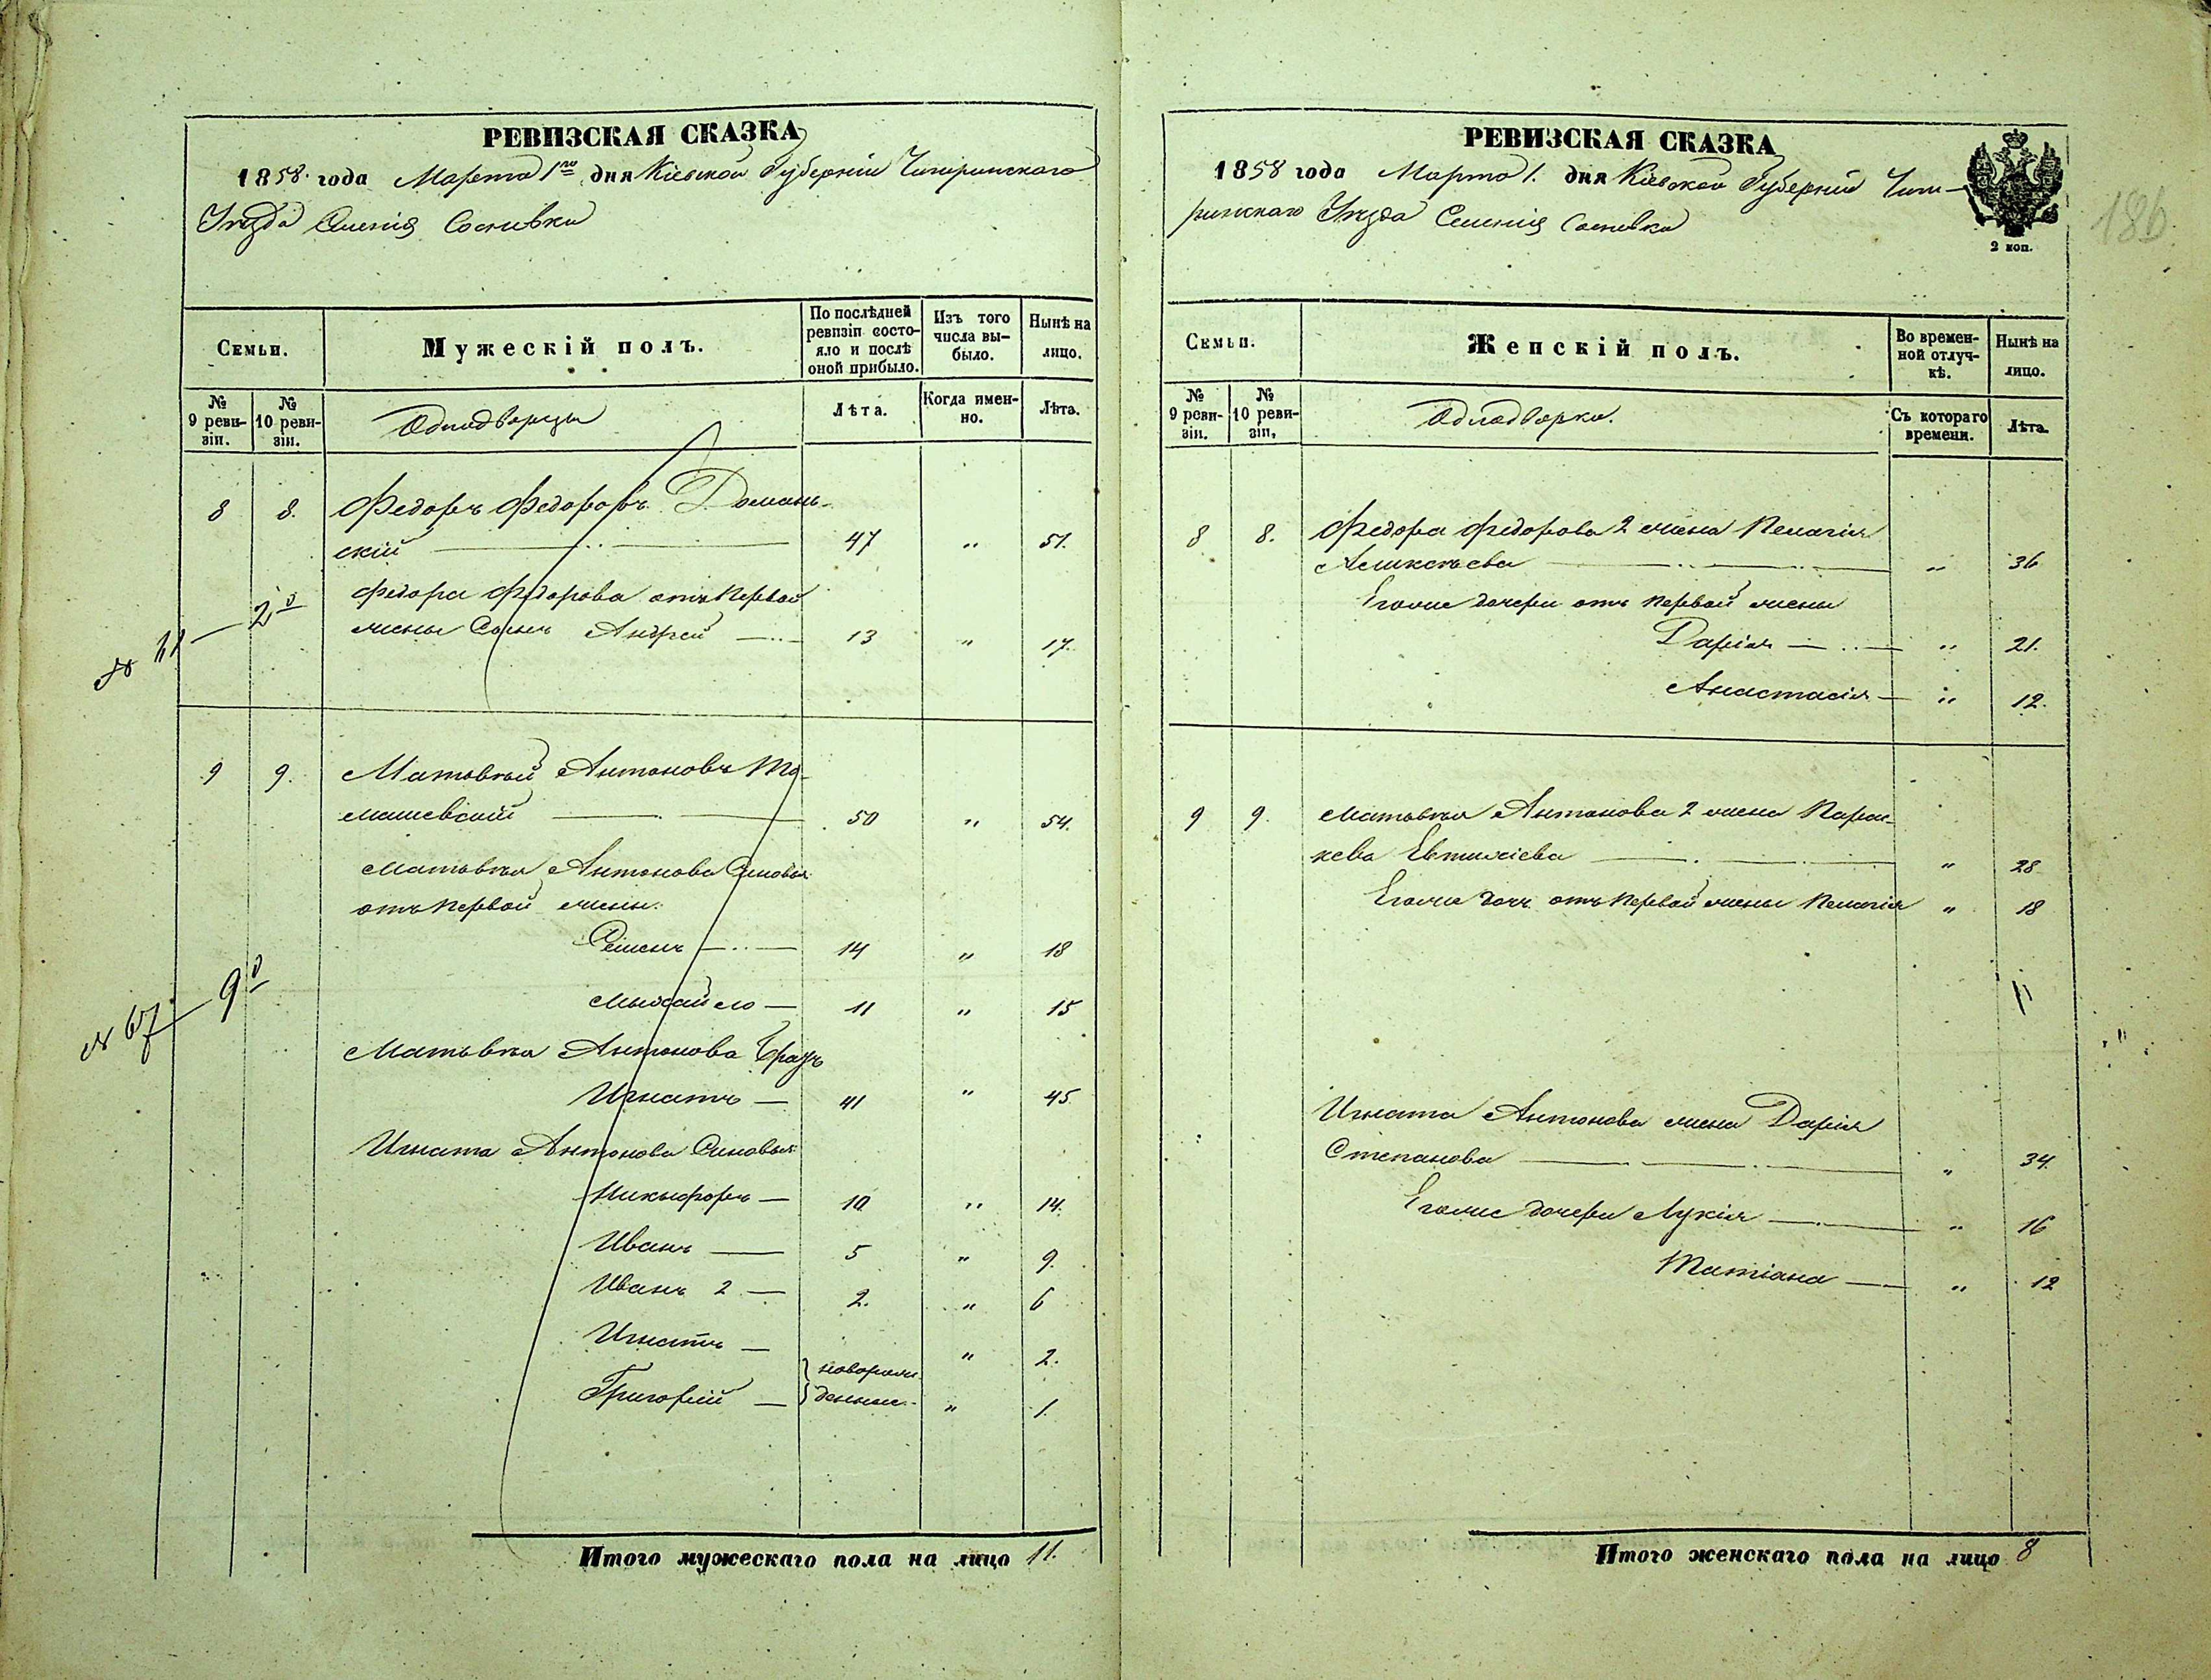 РЕВИЗСКАЯ СКАЗКА
1858. года Марта 1го дня Кіевской Губерніи Чигиринскаго
Уезда Селенія Сосновки
Семьи.
Мужескій полъ.
По послѣдней ревизіи состояло и послѣ оной прибыло.
Изъ того числа выбыло.
Нынѣ на лицо.
№ 9 ревизіи.
№ 10 ревизіи.
Однодворцы
Лѣта.
Когда именно.
Лѣта.
8 8. Федоръ Федоровъ Домань-
скій 47 " 51.
Федора Федорова отъ первой
жены Сынъ Андрей 13 " 17.
2
9 9. Матвѣй Антоновъ То-
машевскій 50 " 54.
Матвѣя Антонова Сыновья
отъ первой жены:
Семенъ 14 " 18
Михайло 11 " 15
№ 67 9
Матвѣя Антонова Братъ
Игнатъ 41 " 45
Игната Антонова Сыновья
Никифоръ 10 " 14.
Иванъ 5 " 9.
Иванъ 2 2. " 6
Игнатъ " 2.
новорож-
Григорій денные " 1.
Итого мужескаго пола на лицо 11.
РЕВИЗСКАЯ СКАЗКА
1858 года Марта 1. дня Кіевской Губерніи Чиги-
ринскаго Уезда Селенія Сосновки
2 коп.
186
Семьи.
Женскій полъ.
Во временной отлучкѣ.
Нынѣ на лицо.
№ 9 ревизіи.
№ 10 ревизіи.
Однодворки.
Съ котораго времени.
Лѣта.
8 8. Федора Федорова 2 жена Пелагія
Алексѣева " 36
Егоже дочери отъ первой жены
Дарія " 21.
Анастасія " 12.
9 9. Матвѣя Антонова 2 жена Парас-
кева " 28
Егоже дочь отъ первой жены Пелагія " 18
Игната Антонова жена Дарія
Степанова " 34.
Егоже дочери Лукія " 16
Татіана " 12
Итого женскаго пола на лицо 8